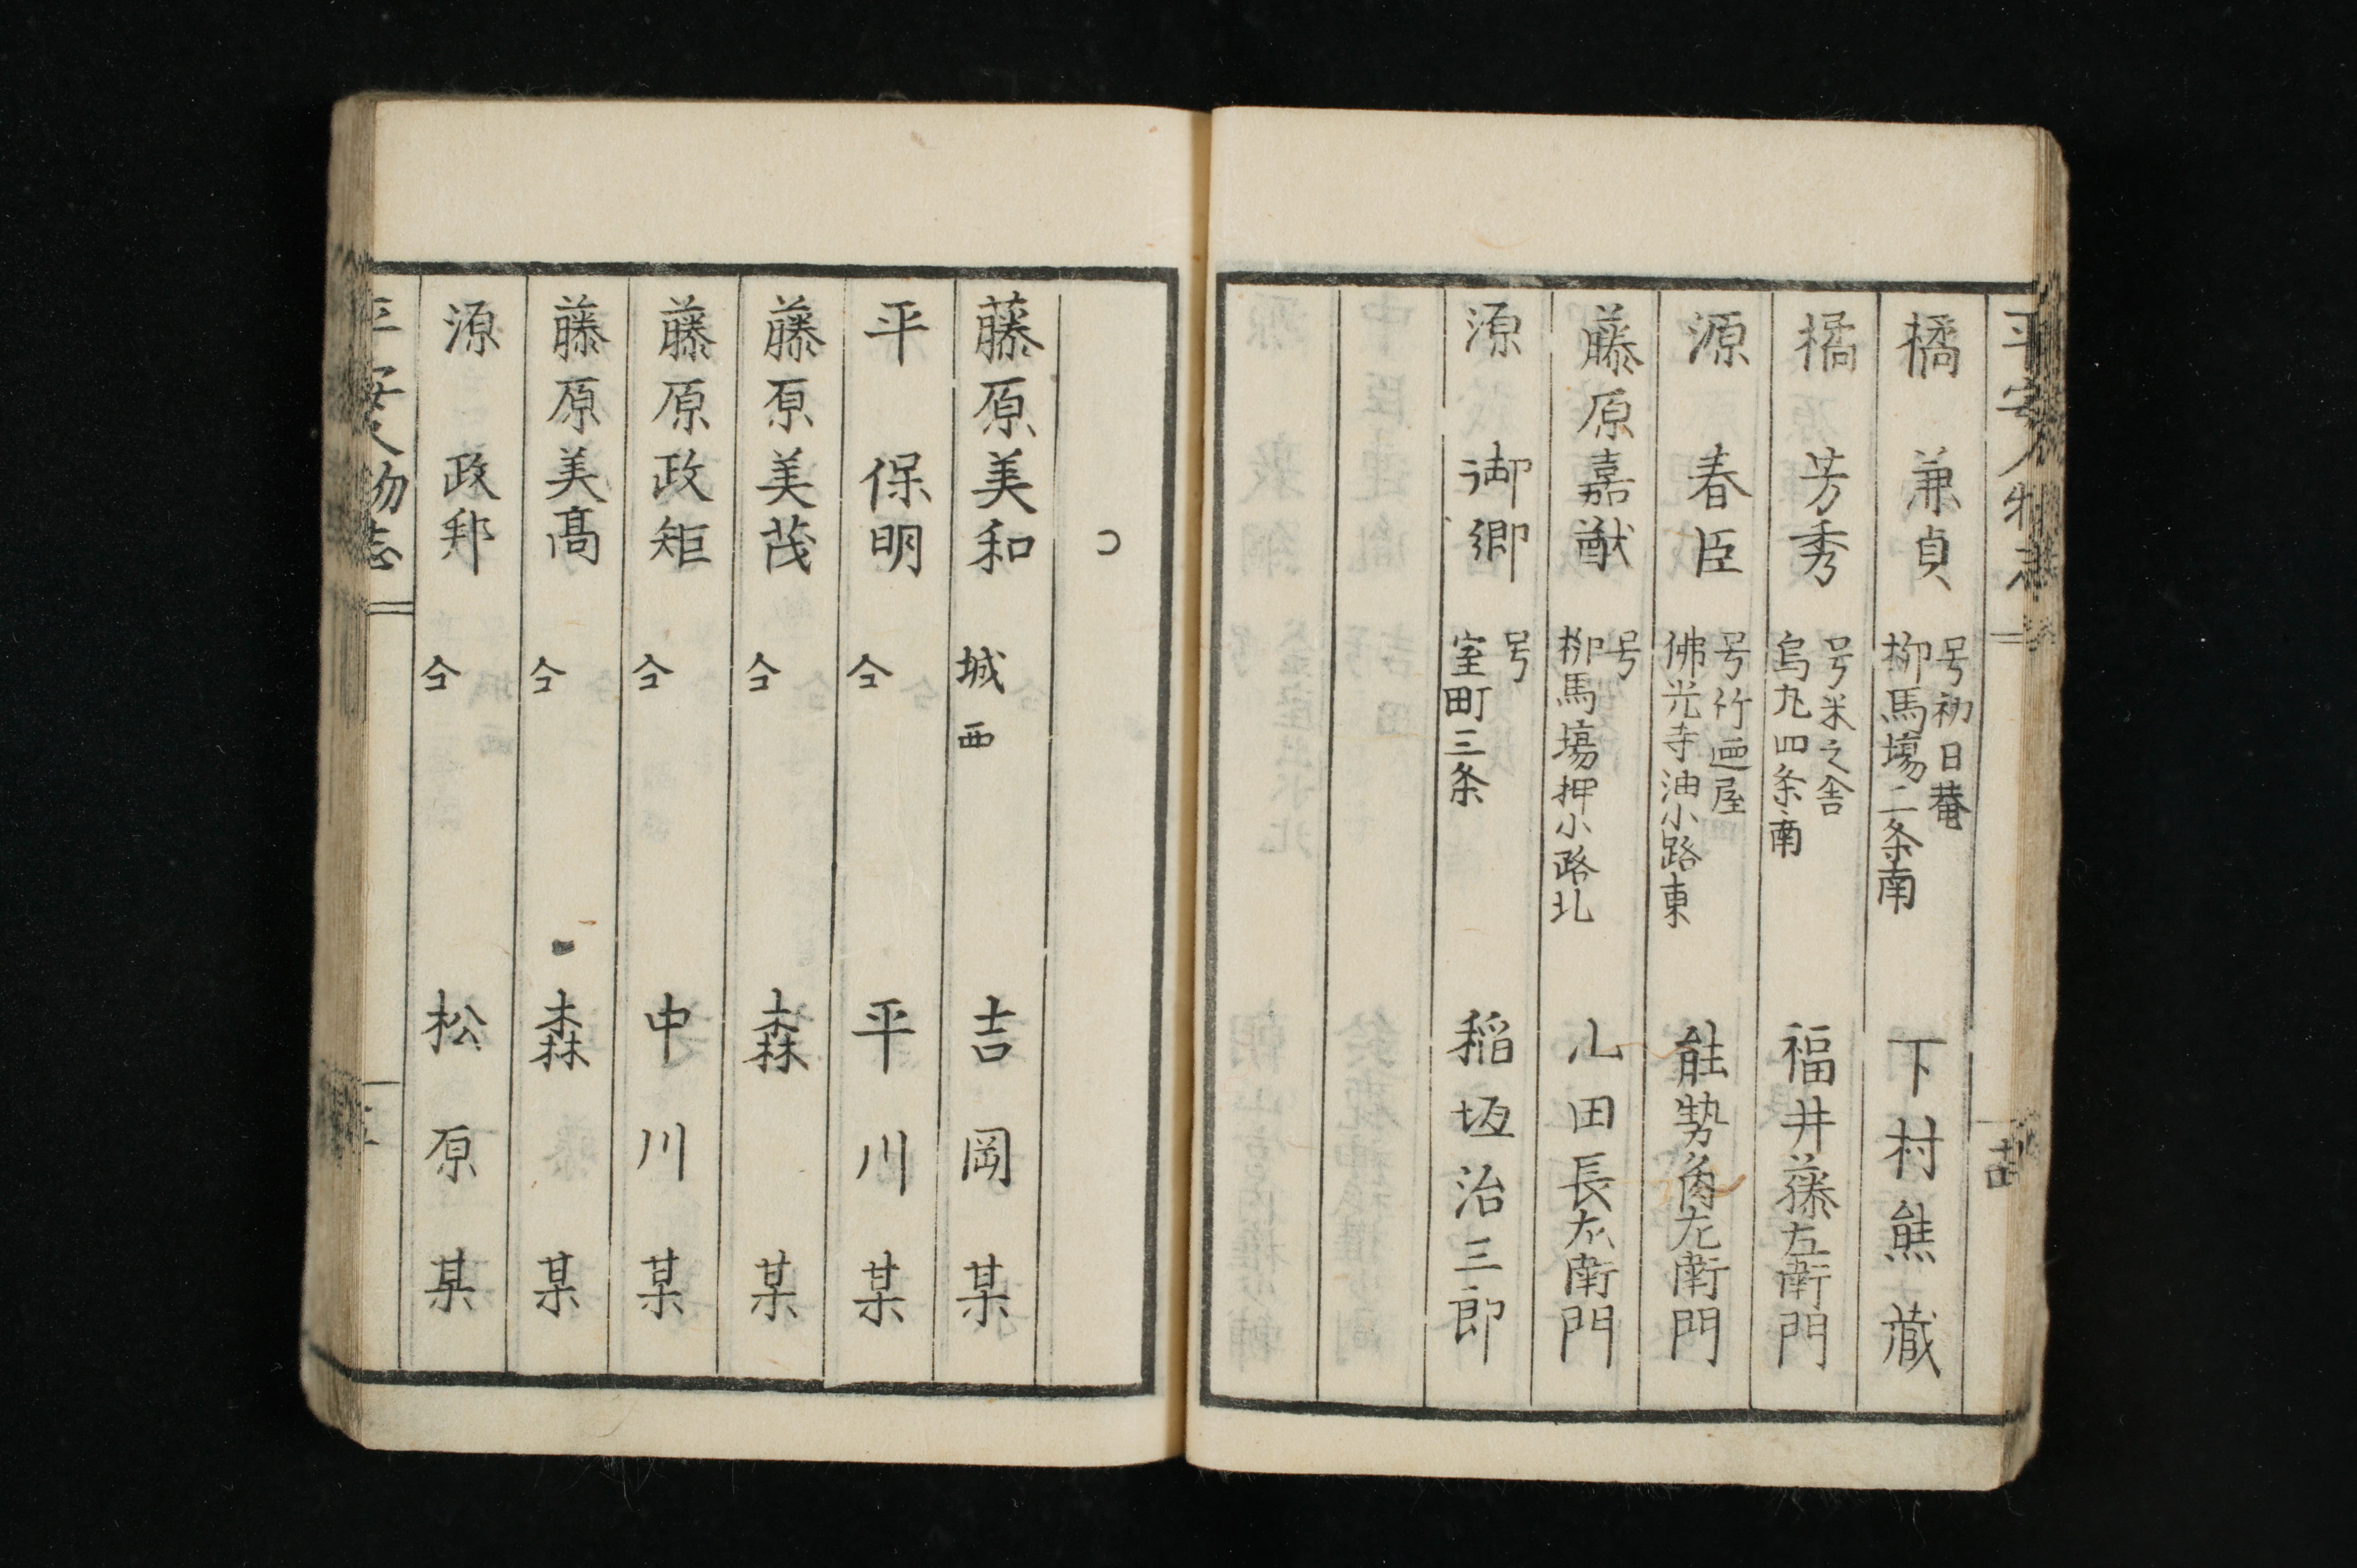 平安人物志
橘 兼貞 号初日菴 柳馬場二条南 下村熊蔵
橘 芳秀 号米之舎 烏丸四条南 福井藤左衛門
源 春臣 号竹廼屋 佛光寺油小路東 能勢角左衛門
藤原嘉猷 号 柳馬場押小路北 山田長左衛門
源 御卿 号 室町三条 稲垣治三郎
藤原美和 城西 吉岡某
平 保明 仝 平川某
藤原美茂 仝 森 某
藤原政矩 仝 中川某
藤原美髙 仝 森 某
源 政邦 仝 松原某
平安人物志